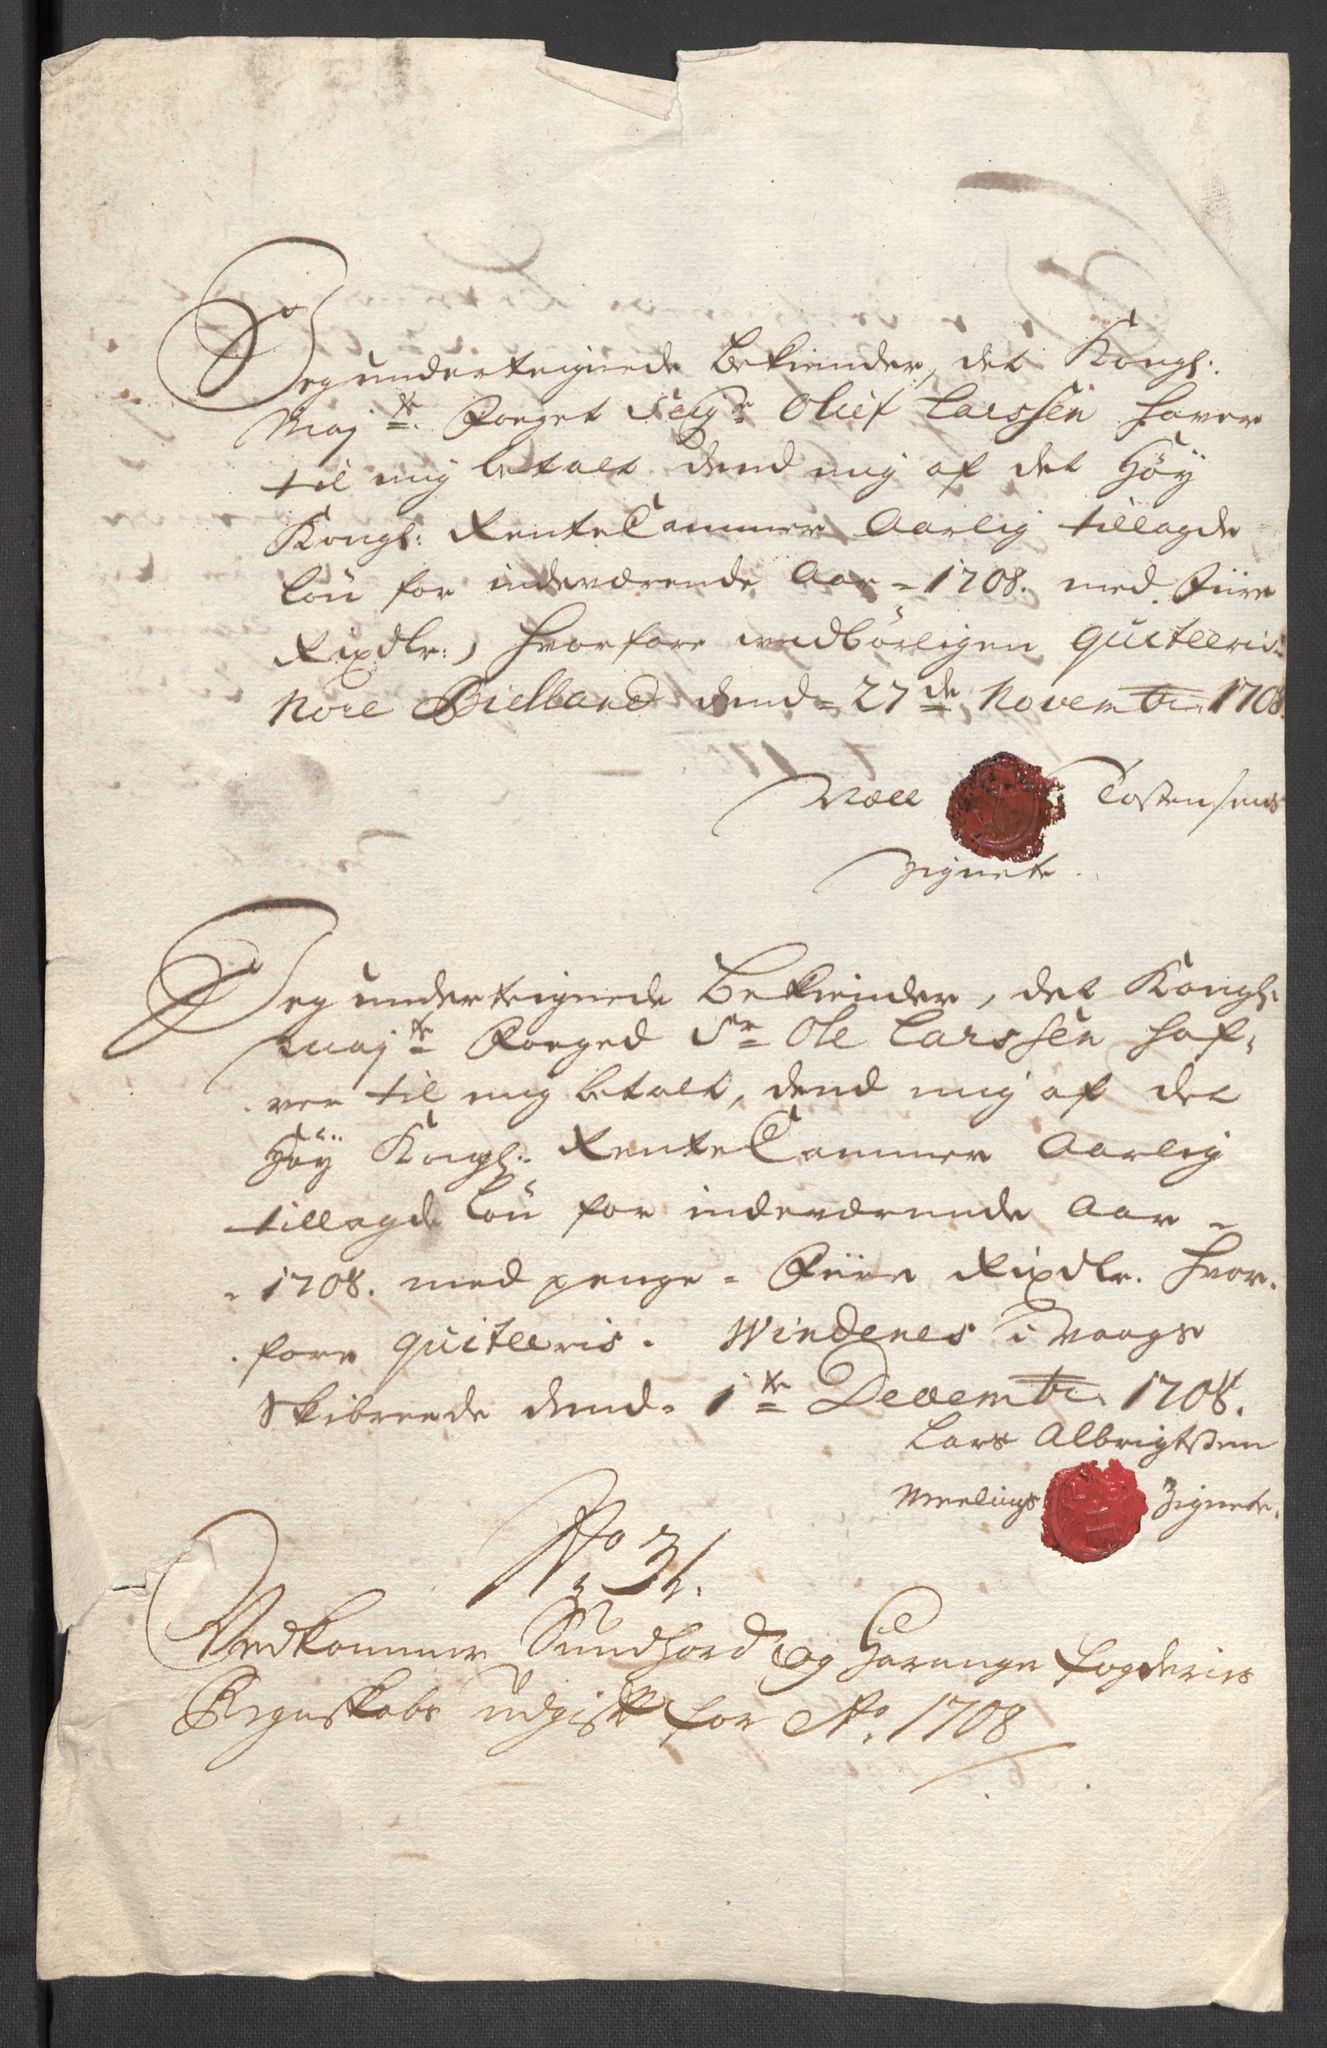 Jeg underteignede bekiender, det Kongl:
Maj te. Foeget Seigr Oluf Larssen haver
til mig betalt dend mig af det Höy
Kongl: RenteCammer Aarlig tillagde
Lön for indeværende Aar = 1708. med Fiire
Rixdlr:, hvorfore vedbörligen quitteris
Nore Bielland dend = 27de Novembr: 1708.
Tostensens
Zignete.
Jeg underteignede Bekiender, det Kongl:
Maj te Foeged Sr Ole Larssen haf,
ver til mig betalt, dend mig af det
Höy Kongl: RenteCammer Aarlig
tillagde Lön for indeværende Aar =
= 1708. med penge = Fiire Rixdlr. hvor,
fore quitteris. Windenes i Waags
Skibrede dend = 1te Decembr: 1708.
Lars Albrigtsen
Meelings Zignete.
No 31.
Vedkommer Sundhord og Haranger fogderies
Regnskabs udgift for Ao. 1708